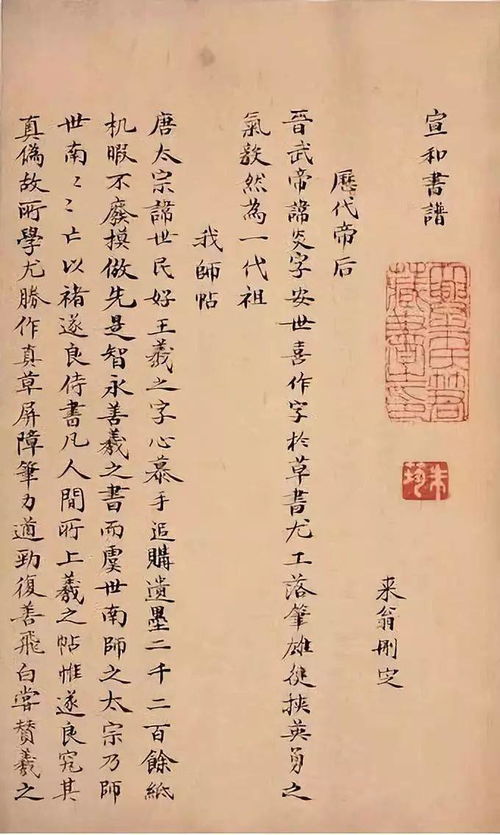 宣和書譜
大興朱氏竹君藏書之印
朱筠
来翁刪定
歷代帝后
晉武帝諱炎字安世喜作字於草書尤工落筆雄健挾英勇之
氣毅然為一代祖
我師帖
唐太宗諱世民好王羲之字心慕手追購遺墨二千二百餘紙
机暇不廢摸倣先是智永善羲之書而虞世南師之太宗乃師
世南〻〻亡以褚遂良侍書凡人間所上羲之帖惟遂良究其
真偽故所學尤勝作真草屏障筆力遒勁復善飛白嘗賛羲之